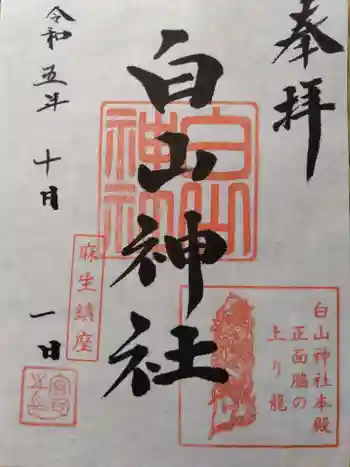 奉拝
白山神社
白山神社
令和五年 十月 一日
麻生鎮座
白山神社本殿
正面脇の
上り龍